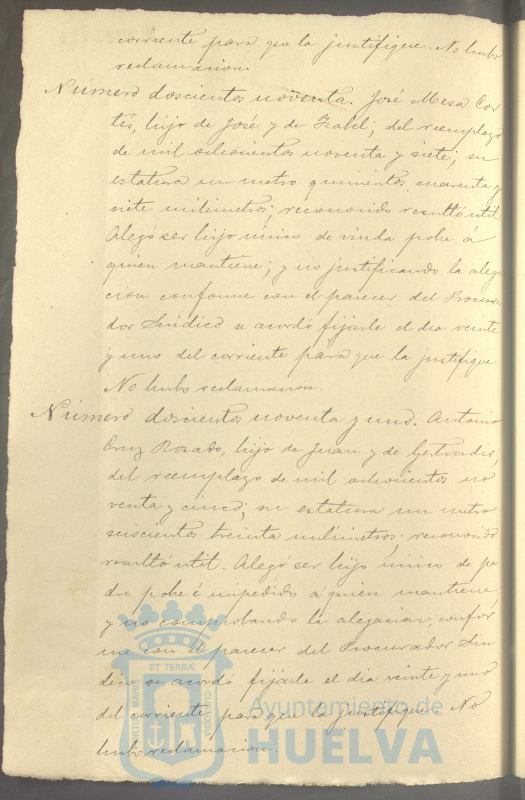 corriente para que la justifique. No hubo
reclamacion.
Número doscientos noventa. José Mesa Cor-
tés, hijo de José y de Isabel; del reemplazo
de mil ochocientos noventa y siete; su
estatura un metro quinientos cuarenta y
siete milimetros; reconocido resultó util.
Alegó ser hijo único de viuda pobre á
quien mantiene; y no justificando la alega
cion conforme con el parecer del Procura
dor Sindico se acordó fijarle el dia veinte
y uno del corriente para que la justifique
No hubo reclamacion.
Número doscientos noventa y uno. Antonio
Cruz Rosado, hijo de Juan y de Gertrudis,
del reemplazo de mil ochocientos no
venta y cinco; su estatura un metro
seiscientos treinta milimetros; reconocido
resultó util. Alegó ser hijo único de pa
dre pobre é impedido á quien mantiene
y no comprobando la alegacion, confor
me con el parecer del Procurador Sin
dico se acordó fijarle el dia veinte y uno
del corriente para que la justifique. No
hubo reclamacion.
PORTUS MARIS ET TERRÆ CUSTODIA
Ayuntamiento de
HUELVA